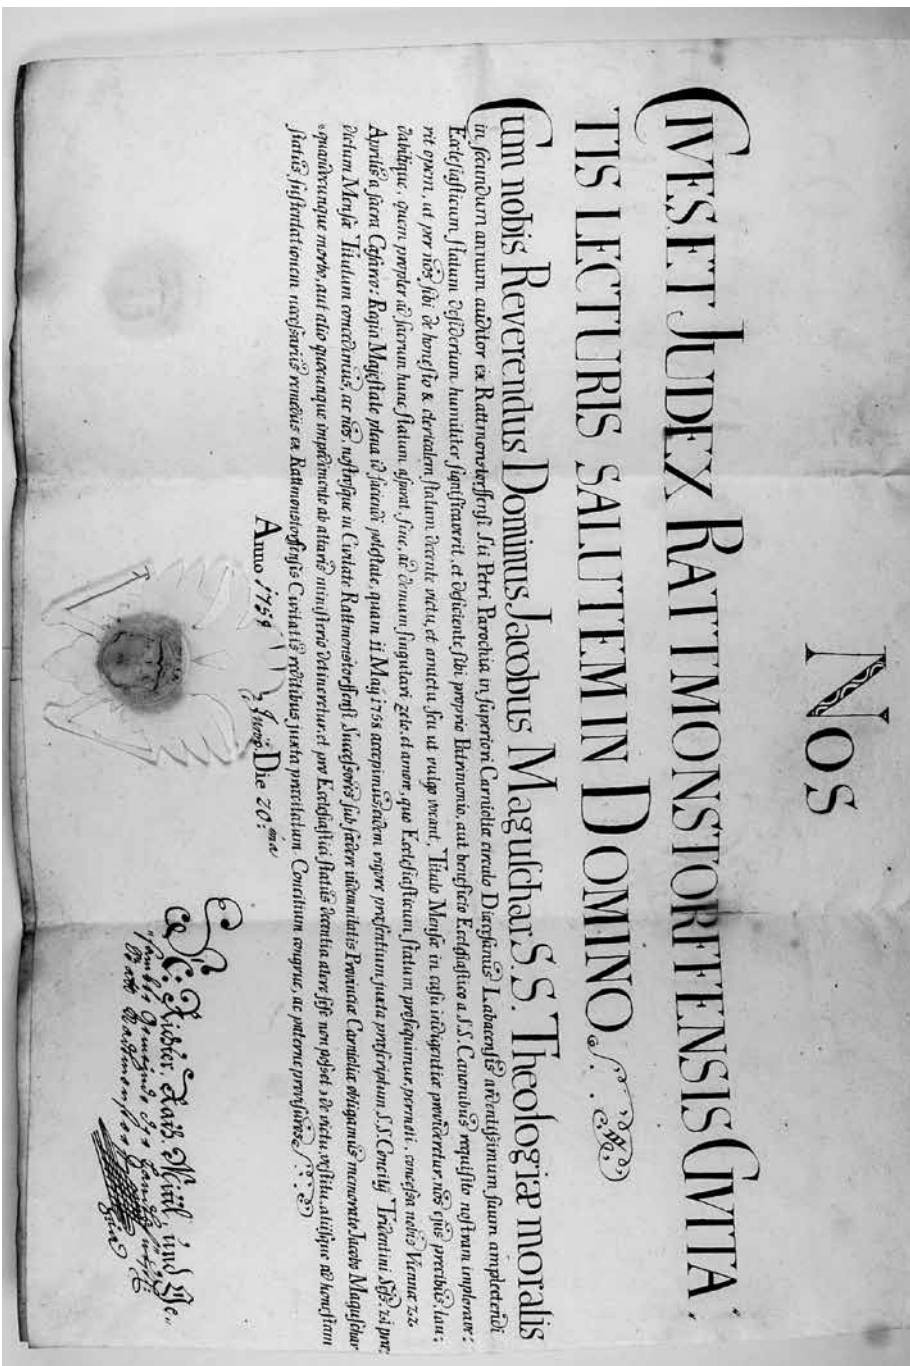 Nos
CIVES ET JUDEX RATTMONSTORFFENSIS CIVITA:
TIS LECTURIS SALUTEM IN DOMINO
Cum nobis Reverendus Dominus Jacobus Maguſchar S.S. Theologiæ moralis
in ſecundum annum auditor ex Rattmonstorffenſi S:ti Petri Parochia in ſuperiori Carnioliæ circulo Diœceſanus Labacenſis ardentiſſimum ſuum amplectendi
Eccleſiaſticum ſtatum deſiderium humiliter ſignificaverit, et deficiente ſibi proprio Patrimonio, aut beneficio Eccleſiaſtico a S.S. Canonibus requiſito noſtram implorave:
rit opem, ut per nos ſibi de honeſto & clericalem ſtatum decente victu, et amictu, ſeu ut vulgo vocant, Titulo Menſæ in caſu indigentiæ provideretur, nos ejus precibus lau:
dabilique, quem propter ad ſacrum hunc ſtatum, aſpirat, fine, ac demum ſingulari zelo, et amore, quo Eccleſiaſticum ſtatum proſequimur, permoti, conceſſa nobis Viennæ 22
Aprilis a ſacra Cæſareo: Regia Majeſtate plena id faciendi poteſtate, quam ii Maÿ 1758 accepimus, eidem vigore præſentium, juxta præſcriptum S.S. Concilÿ Tridentini Seſſ: 21 præ:
dictum Menſæ Titulum concedimus, ac nos, noſtroſque in Civitate Rattmonstorffenſi Succeſſores ſub fædere indemnitatis Provinciæ Carnioliæ obligamus memorato Jacobo Maguſchar
quandocunque morbo, aut alio quocunque impedimento ab altaris miniſterio detineretur, et pro Eccleſiaſtici ſtatus decentia alere ſeſe non poſſet, de victu, veſtitu, aliiſque ad honeſtam
ſtatus ſuſtentationem neceſſariis remediis ex Rattmonstorffenſis Civitatis reditibus juxta præcitatum Concilium congrue, ac paterne proviſuros
Anno 1758 Junÿ Die 20:ma
N: Richter, Rath Mitl, und Ge: